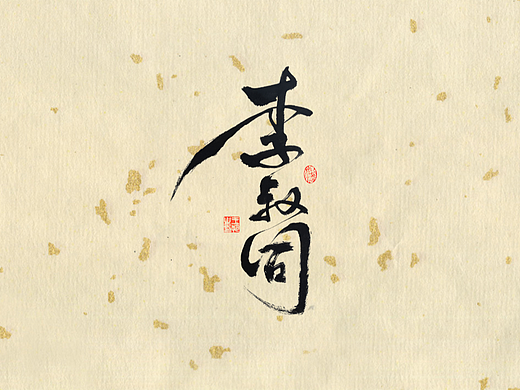 李叔同